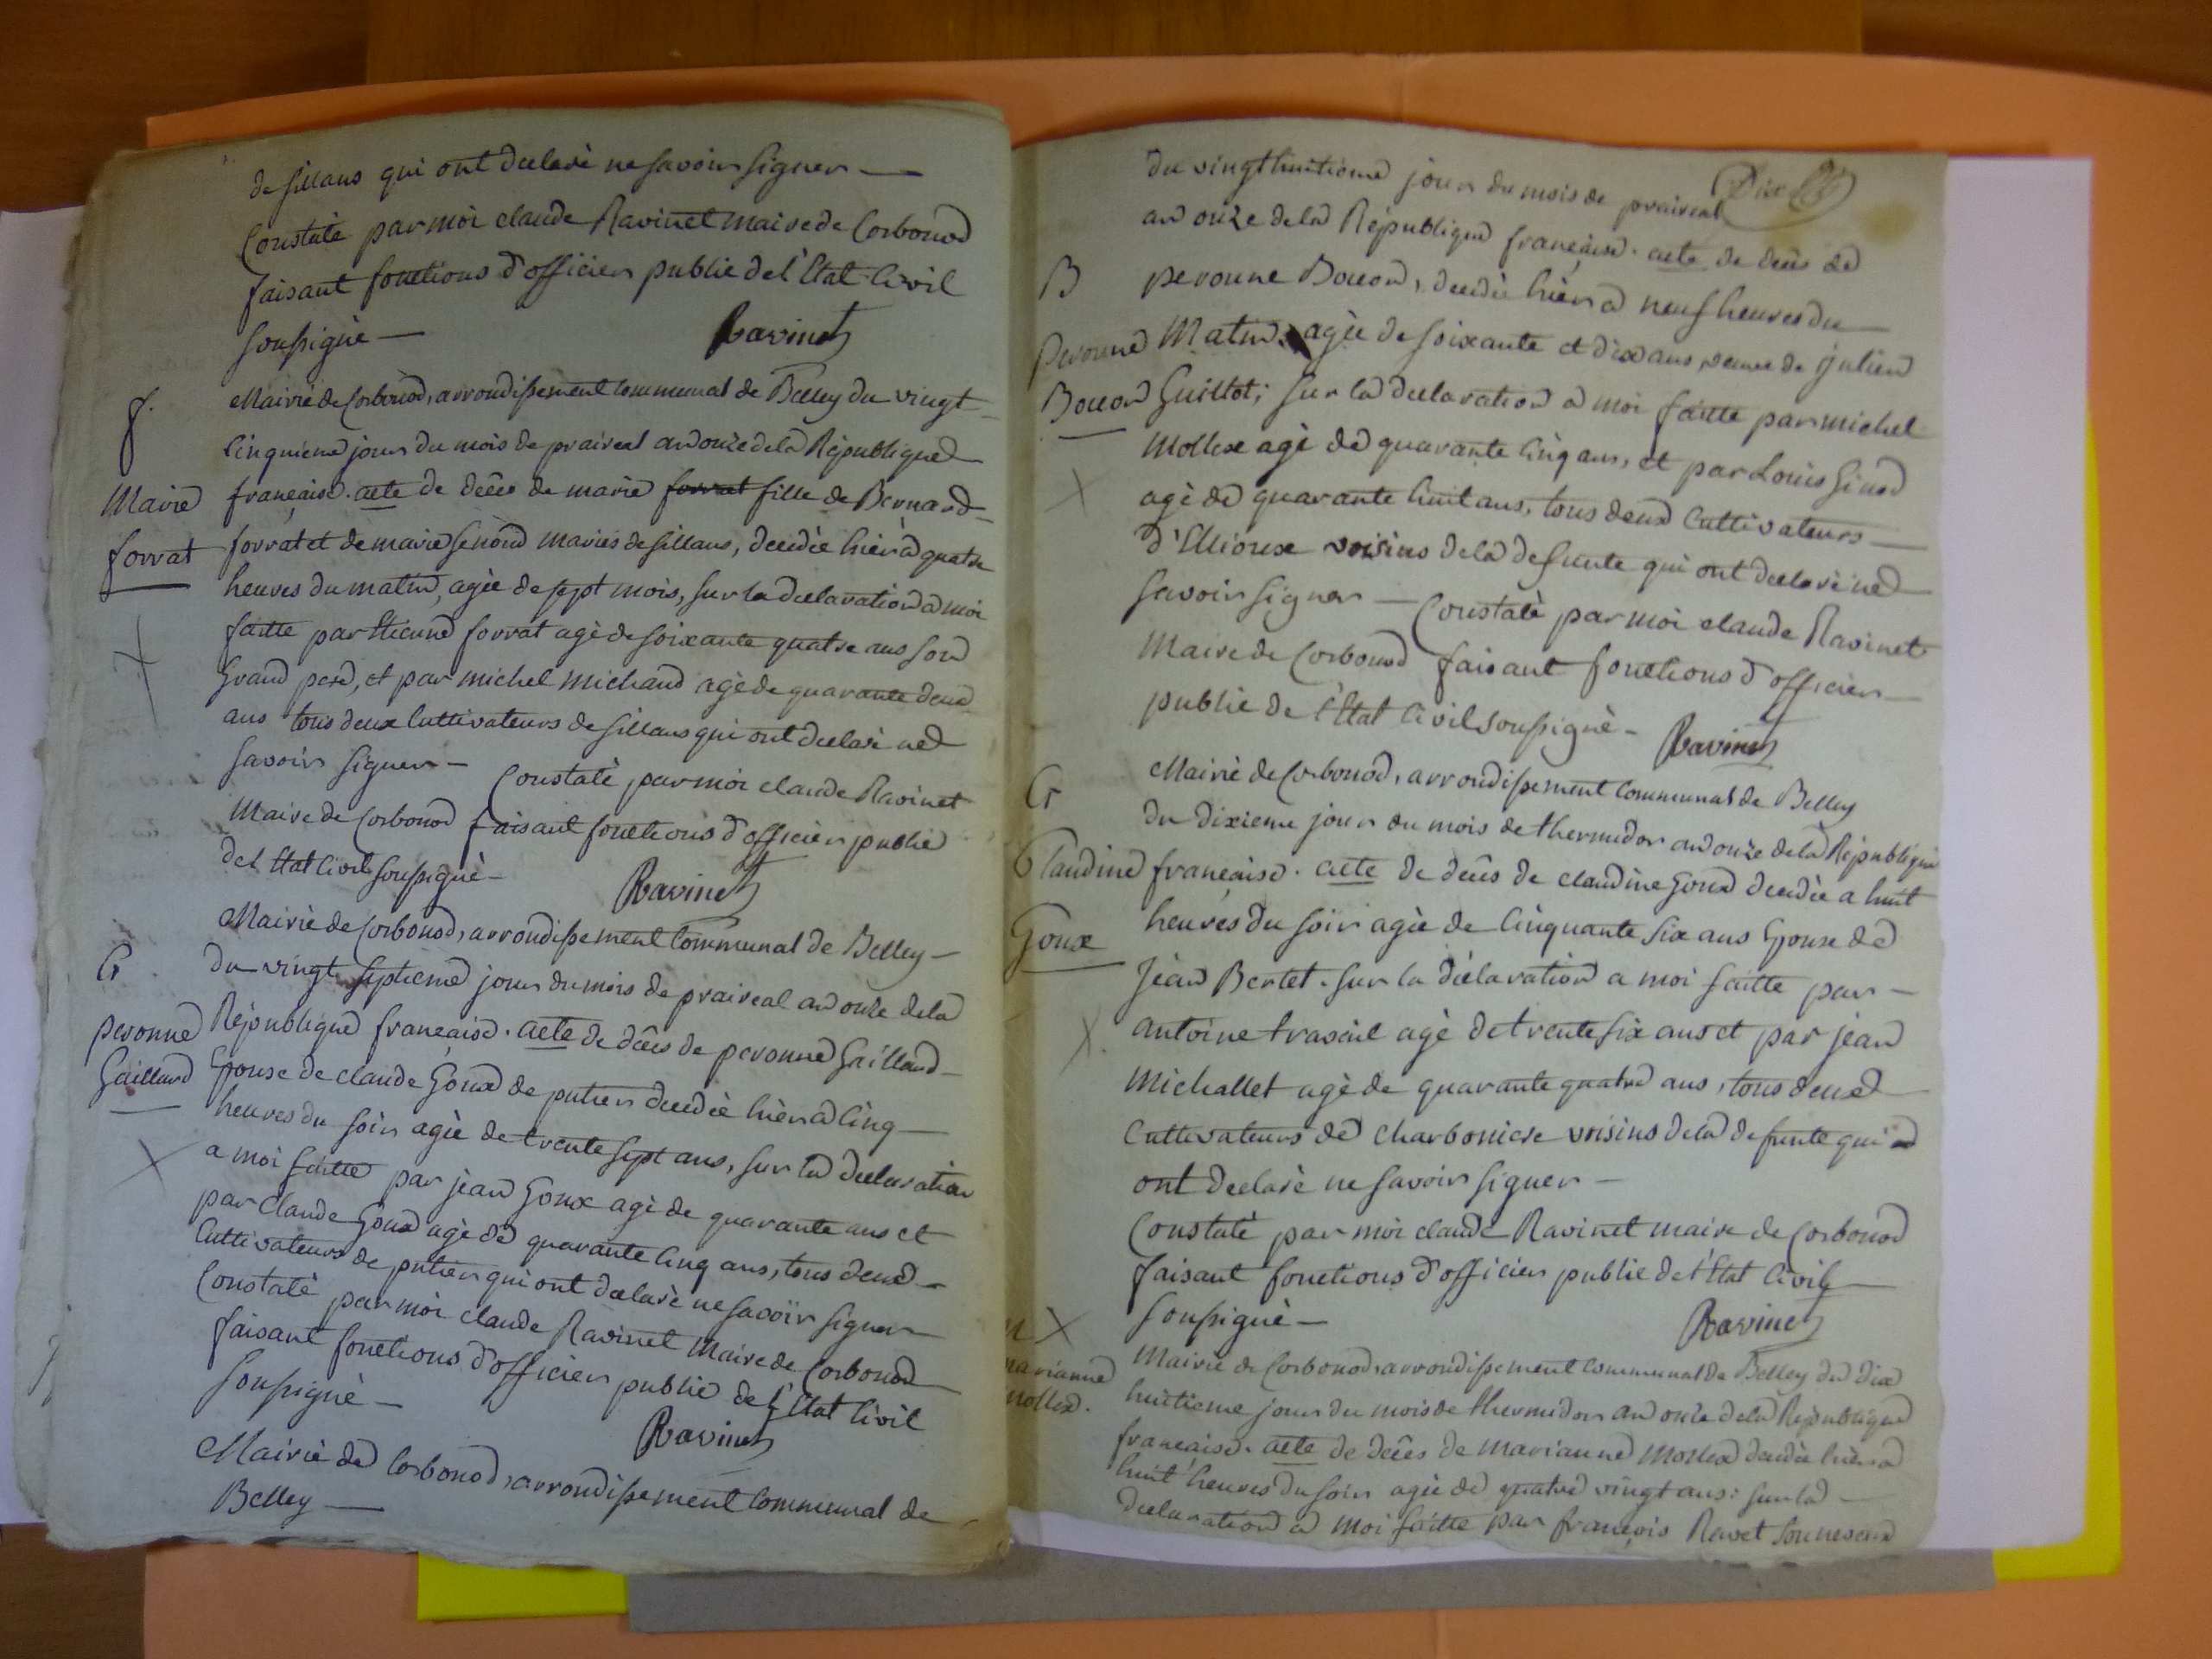 de sillans qui ont declarè ne savoir signer —
Constatè par moi claude Ravinet maire de Corbonod
faisant fonctions d'officier public de l'Etat Civil
soussignè —
Ravinet
Mairie de Corbonod, arrondissement communal de Belley du vingt
f.
cinquieme jour du mois de praireal an onze de la Republique
Marie
française. acte de decès de marie forrat fille de Bernard
forrat
forrat et de marie senond mariés de sillans, decedèe hièr à quatre
heures du matin, agèe de sept mois, sur la declaration a moi
faitte par Etienne forrat agè de soixante quatre ans son
Grand pere, et par michel michaud agè de quarante deux
ans tous deux Cultivateurs de sillans qui ont declarè ne
savoir signer — Constatè par moi claude Ravinet
Maire de Corbonod faisant fonctions d'officier public
del Etat Civil soussignè —
Ravinet
Mairie de Corbonod, arrondissement Communal de Belley —
G
du vingt septieme jour du mois de praireal an onze dela
peronne
Rèpublique françaisé. acte de dècès de peronne Gaillard
Gaillard
Epouse de claude Goux de putier decedèe hièr a cinq —
heures du soir agèe de trente sept ans, sur la declaration
a moi faitte par jean Goux agè de quarante ans et
par Claude Goux agè de quarante cinq ans, tous deux —
Cultivateurs de putier qui ont declarè ne savoir signer
Constatè par moi claude Ravinet Maire de Corbonod
faisant fonctions d'officier public de l'Etat Civil
soussignè —
Ravinet
Mairiè de Corbonod, arrondissement Communal de
Belley —
Dix
du vingt huitieme jour du mois de praireal
an onze dela Rèpublique française. acte de decès de
B
peronne Bovon, decedèe hièr a neuf heures du
peronne
Matin, agèe de soixante et dix ans, veuve de julien
Bovon
Guillot; sur la declaration a moi faitte par michel
Mollex agè de quarante cinq ans, et par Louis Ginod
agè de quarante huit ans, tous deux Cultivateurs —
d'Elioux voisins dela defunte qui ont declarè ne
savoir signer — Constatè par moi claude Ravinet
Maire de Corbonod faisant fonctions d'officier —
public de l'Etat Civil soussignè —
Ravinet
Mairiè de Corbonod, arrondissement Communal de Belley
G
du dixieme jour du mois de thermidor an onze dela Rèpublique
Claudine
française. acte de decès de claudine Goux decedèe a huit
Goux
heures du soir agèe de cinquante six ans Epouse de
Jèan Bertet. sur la dèclaration a moi faitte par —
antoine travail agè de trente six ans et par jean
Michallet agè de quarante quatre ans, tous deux
Cultivateurs de Charboniere voisins dela defunte qui
ont declarè ne savoir signer —
Constatè par moi claude Ravinet maire de Corbonod
faisant fonctions d'officier public de l'Etat Civil
soussignè —
Ravinet
Mairie de Corbonod, arrondissement Communal de Belley du dix
marianne
huitieme jour du mois de thermidor an onze dela Rèpublique
Mollex.
française. acte de decès de marianne Mollex decedèe hièr a
huit heures du soir agèe de quatre vingt ans: sur la —
declaration a moi faitte par françois Ravet